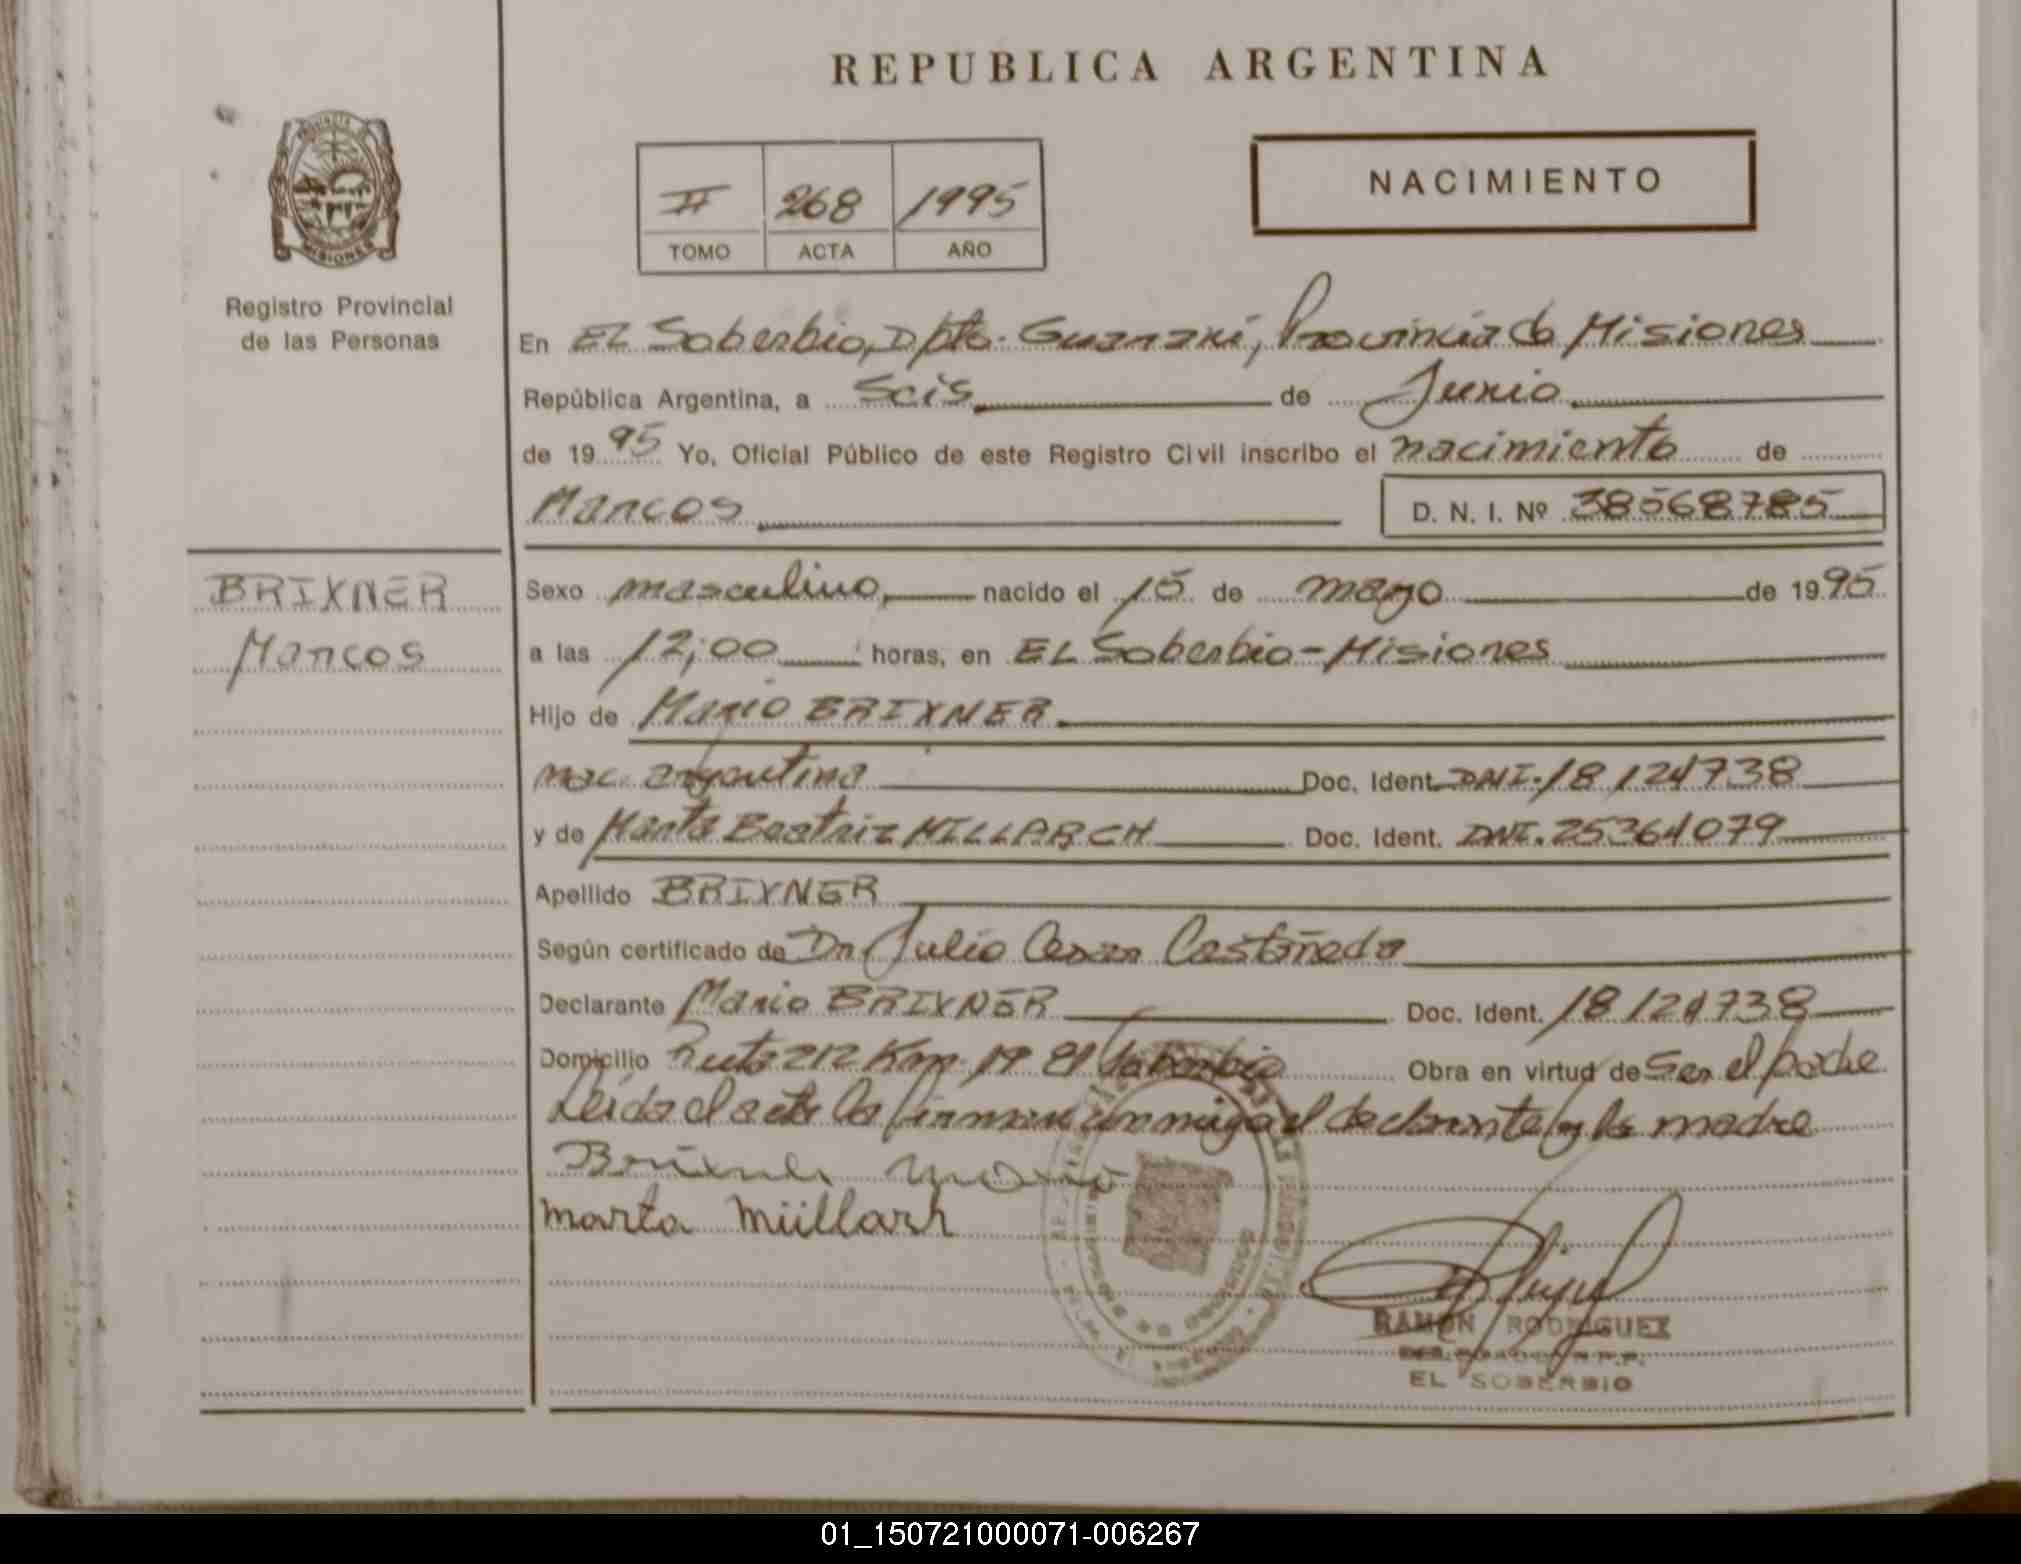 REPUBLICA ARGENTINA
PROVINCIA DE
MISIONES
Registro Provincial
de las Personas
II 268 1995
TOMO ACTA AÑO
NACIMIENTO
En EL Soberbio, Dpto. Guarani, Provincia de Misiones
República Argentina, a Seis de Junio
de 1995 Yo, Oficial Público de este Registro Civil inscribo el nacimiento de
Marcos D. N. I. Nº 38568785
BRIXNER
Marcos
Sexo masculino, nacido el 15 de mayo de 1995
a las 12;00 horas, en EL Soberbio-Misiones
Hijo de Mario BRIXNER
nac. argentina Doc. Ident. DNI. 18124738
y de Marta Beatriz MILLARCH Doc. Ident. DNI. 25364079
Apellido BRIXNER
Según certificado de Dr. Julio Cesar Castañeda
Declarante Mario BRIXNER Doc. Ident. 18124738
Domicilio Ruta 212 Km. 19 El Soberbio Obra en virtud de Ser el padre
Leida el acta la firman conmigo el declarante y la madre
Brixner Mario
Marta Müllarh
RAMON RODRIGUEZ
EL SOBERBIO
01_150721000071-006267